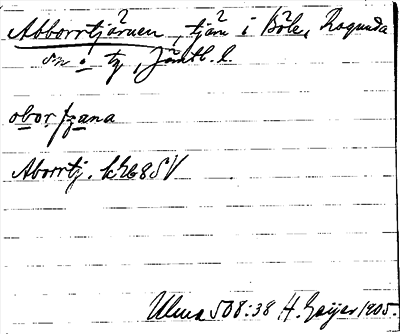 Abborrtjärnen, tjärn i Böle, Ragunda
sn o tg, Jämtl. l.
Aborrtj. k268SV
Uluna 508:38 H. Geijer 1905.